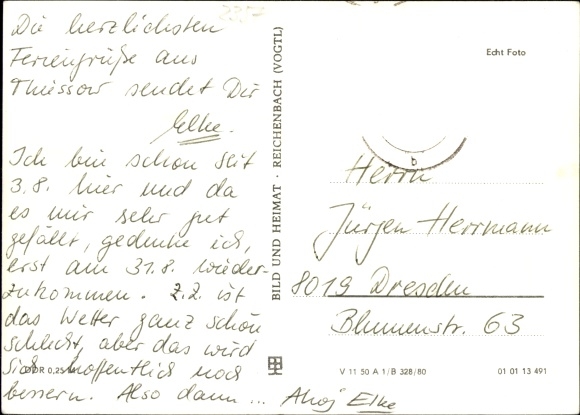 Die herzlichsten
Feriengrüße aus
Thiessow sendet Dir
Elke.
Ich bin schon seit
3.8. hier und da
es mir sehr gut
gefällt, gedenke ich,
erst am 31.8. wieder-
zukommen. Z.Z. ist
das Wetter ganz schön
schlecht, aber das wird
sich hoffentlich noch
bessern. Also dann ... Ahoj Elke
DDR 0,25
BILD UND HEIMAT · REICHENBACH (VOGTL)
Echt Foto
b
Herrn
Jürgen Herrmann
8019 Dresden
Blumenstr. 63
V 11 50 A 1/B 328/80
01 01 13 491